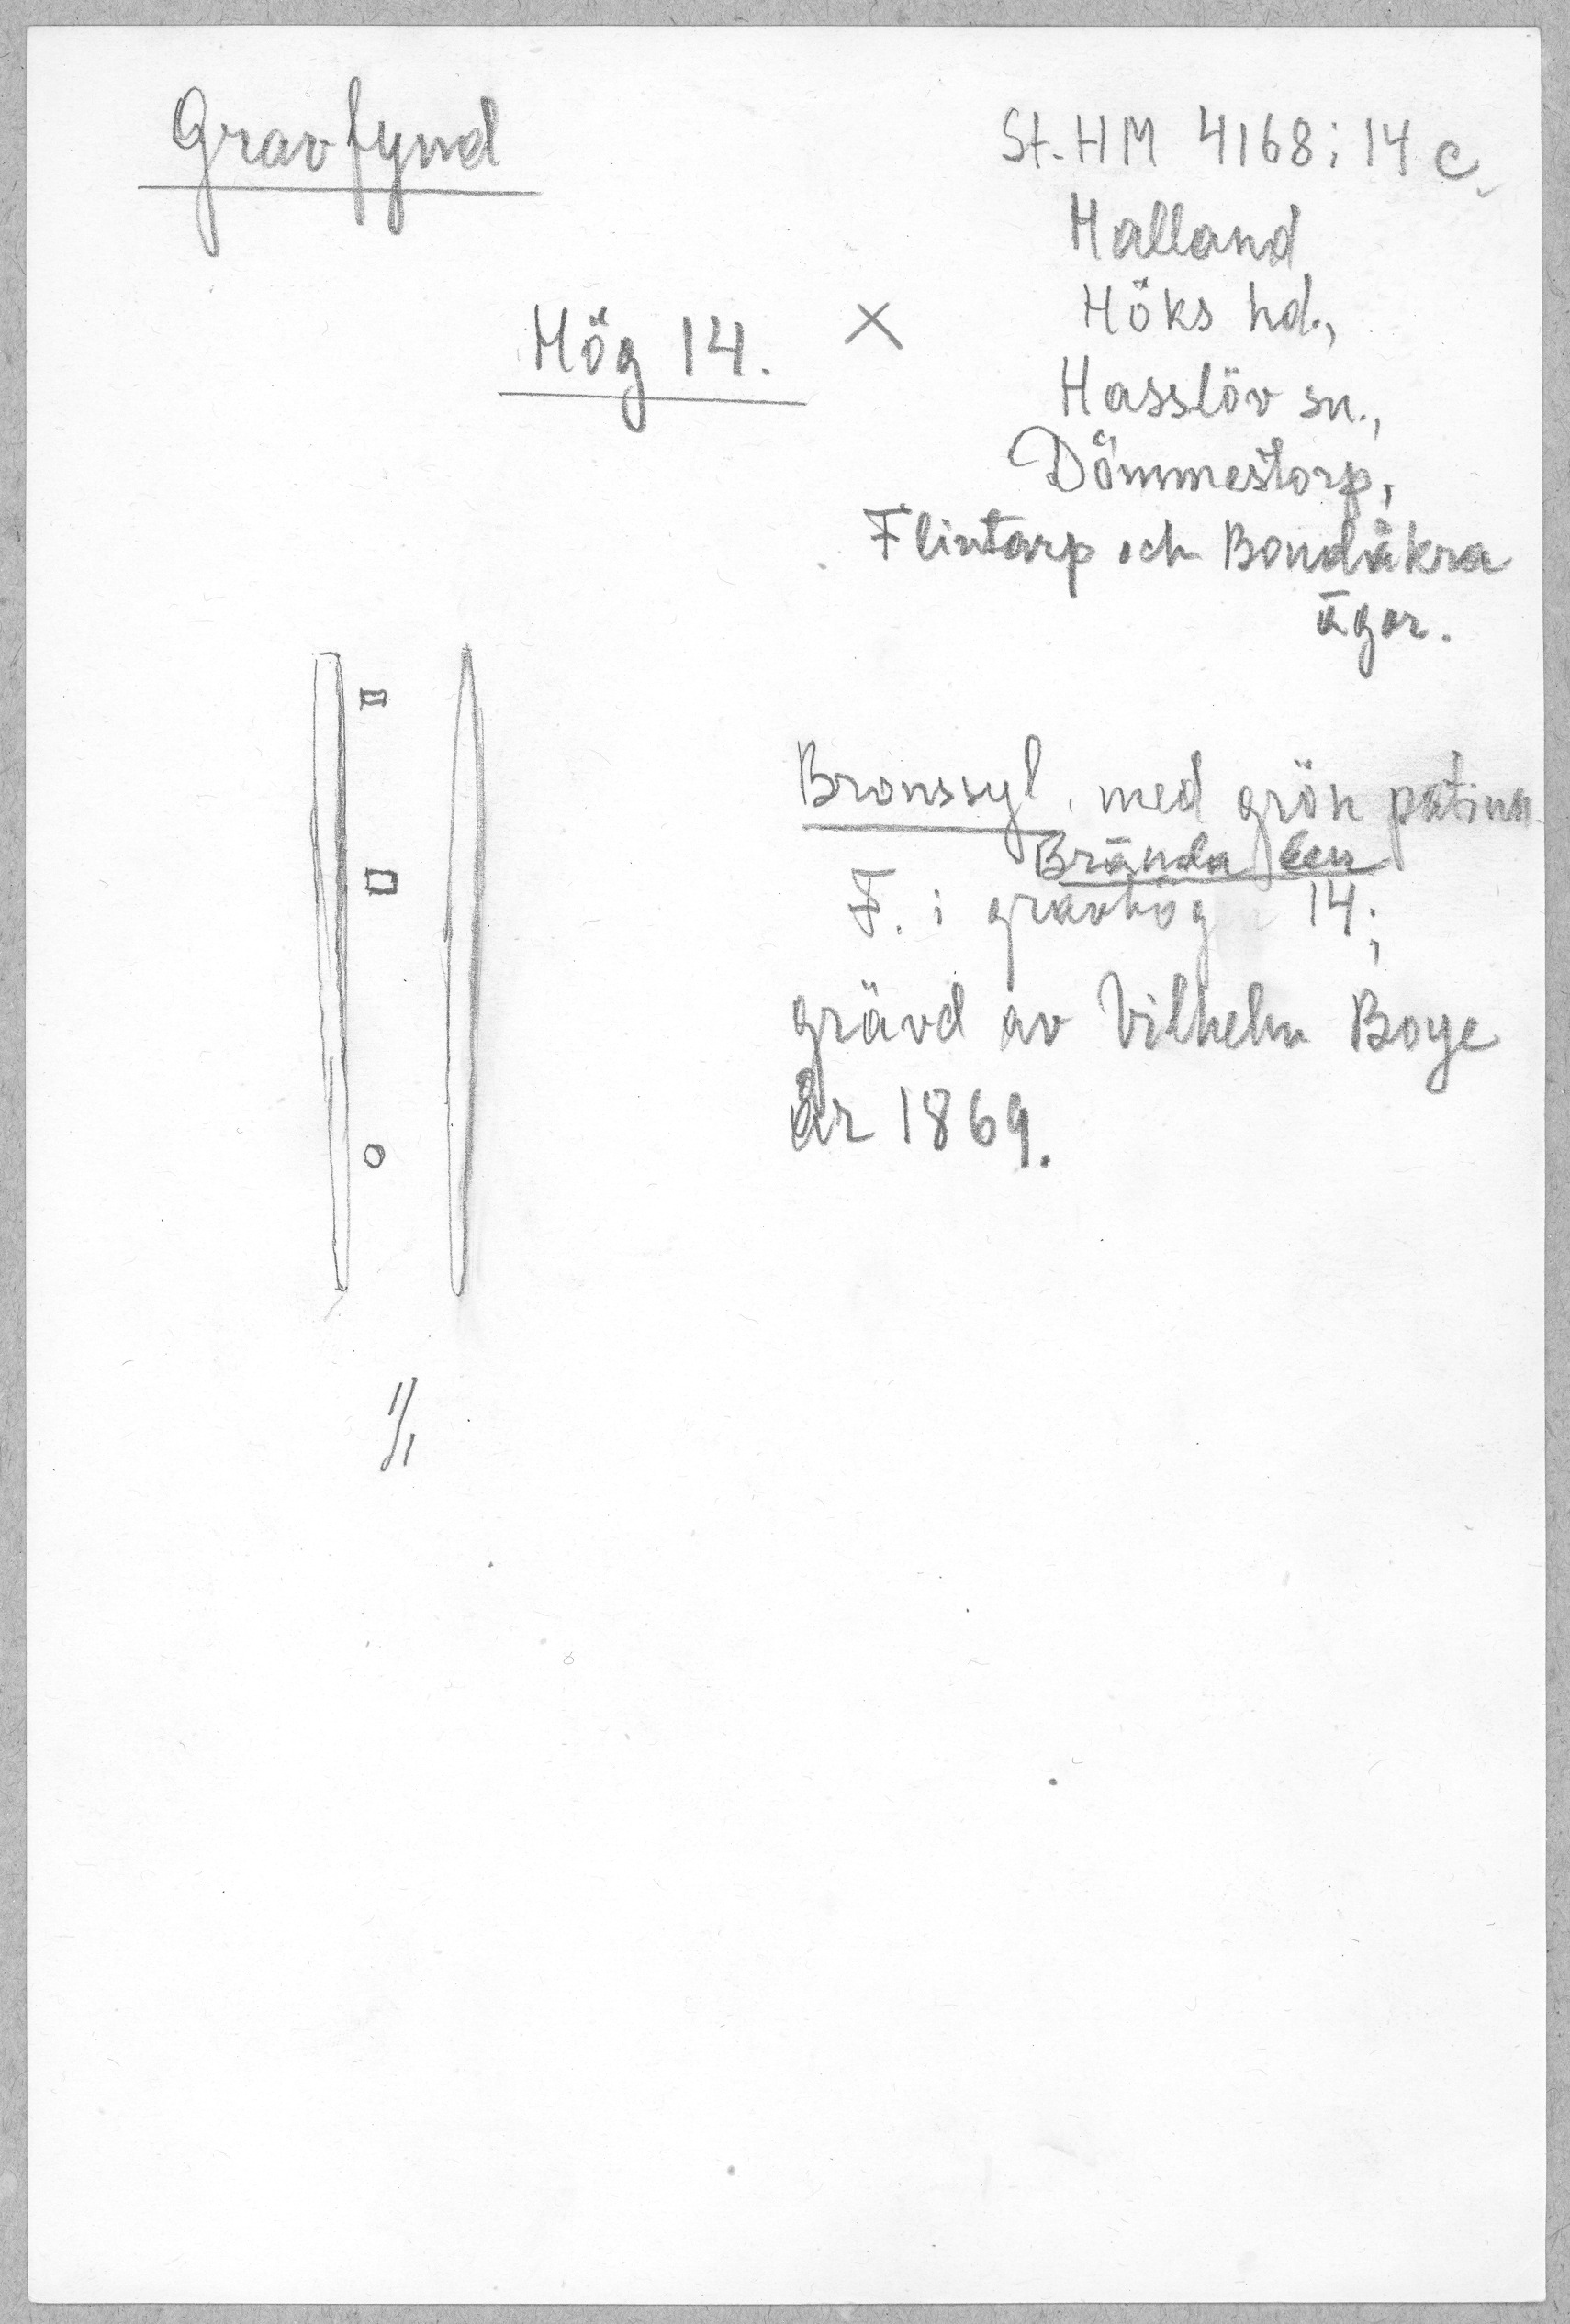 Gravfynd
St. HM 4168:14 c.
Halland
Höks hd.,
Hög 14. ×
Hasslöv sn.,
Dömmestorp,
Flintarp och Bondåkra
ägor.
Bronssyl, med grön patina.
Brända ben
F. i gravhög 14;
grävd av Vilhelm Boye
år 1869.
1/1